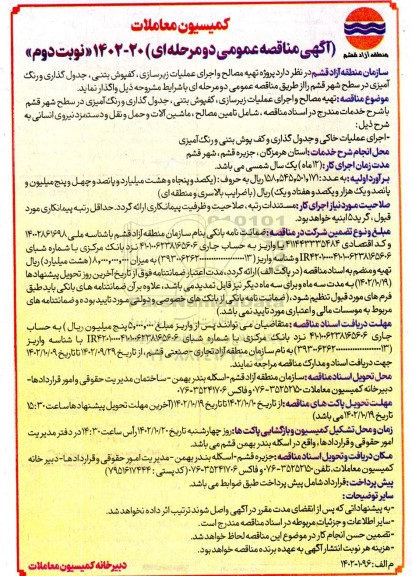 کمیسیون معاملات
(آگهی مناقصه عمومی دو مرحله ای) ۲۰-۱۴۰۲ «نوبت دوم»
منطقه آزاد قشم
سازمان منطقه آزاد قشم در نظر دارد پروژه تهیه مصالح و اجرای عملیات زیرسازی، کفپوش بتنی، جدول گذاری و رنگ
آمیزی در سطح شهر قشم را از طریق مناقصه عمومی دو مرحله ای با شرایط مشروحه ذیل واگذار نماید.
موضوع مناقصه: تهیه مصالح و اجرای عملیات زیرسازی، کفپوش بتنی، جدول گذاری و رنگ آمیزی در سطح شهر قشم
با شرح خدمات مندرج در اسناد مناقصه، شامل تامین مصالح، ماشین آلات و حمل و نقل و دستمزد نیروی انسانی به
شرح ذیل:
-اجرای عملیات خاکی و جدول گذاری و کف پوش بتنی و رنگ آمیزی
محل انجام شرح خدمات: استان هرمزگان، جزیره قشم، شهر قشم
مدت زمان اجرای کار: (۱۲ ماه) یک سال شمسی می باشد.
برآورد اولیه: به عدد: ۱۵۸,۵۴۵,۵۰۱,۱۷۱ ریال به حروف: (یکصد و پنجاه و هشت میلیارد و پانصد و چهل و پنج میلیون و
پانصد و یک هزار و یکصد و هفتاد و یک) ریال (با ضرایب بالاسری و منطقه ای)
صلاحیت مورد نیاز اجرای کار: مستندات رتبه، صلاحیت و ظرفیت پیمانکاری ارائه گردد. حداقل رتبه پیمانکاری مورد
قبول، گرید ۵ ابنیه خواهد بود.
مبلغ و نوع تضمین شرکت در مناقصه: ضمانت نامه بانکی بنام سازمان منطقه آزاد قشم با شناسه ملی ۱۴۰۰۲۸۶۱۶۹۸
و کد اقتصادی ۴۱۱۴۴۳۳۳۵۴۸۴ یا واریز به حساب جاری ۴۱۰۱۰۰۶۲۳۸۱۶۵۶۰۶ نزد بانک مرکزی با شماره شبای
و شناسه واریز به میزان ۸,۰۰۰,۰۰۰,۰۰۰ (هشت میلیارد) ریال
تهیه و منضم به اسناد مناقصه (در پاکت الف) ارائه گردد، مدت اعتبار ضمانتنامه فوق از تاریخ آخرین روز تحویل پیشنهادها
(۱۴۰۲/۱۰/۱۹) به مدت سه ماه و برای سه ماه دیگر نیز قابل تمدید می باشد، علاوه بر آن ضمانتنامه های بانکی باید طبق
فرم های مورد قبول تنظیم شود، (ضمانت نامه بانکی از بانک های خصوصی و دولتی مورد تایید بوده و ضمانتنامه های
مربوط به موسسات مالی و اعتباری مورد تایید نمی باشد)
مهلت دریافت اسناد مناقصه: متقاضیان می توانند پس از واریز مبلغ ۵,۰۰۰,۰۰۰ (پنج میلیون ریال) به حساب
جاری ۴۱۰۱۰۰۶۲۳۸۱۶۵۶۰۶ نزد بانک مرکزی با شماره شبای با شناسه واریز
به نام سازمان منطقه آزاد تجاری-صنعتی قشم، از تاریخ ۱۴۰۲/۰۹/۲۹ تا تاریخ ۱۴۰۲/۱۰/۰۹
جهت دریافت اسناد و مدارک مناقصه مراجعه نمایند.
محل تحویل اسناد مناقصه: سازمان منطقه آزاد قشم-اسکله بندر بهمن-ساختمان مدیریت حقوقی و امور قراردادها-
دبیرخانه کمیسیون معاملات ۳۵۲۵۲۱۵۰-۰۷۶ و فاکس ۳۵۲۴۱۷۰۶-۰۷۶
مهلت تحویل پاکت های مناقصه: از تاریخ ۱۴۰۲/۱۰/۱۰ تا تاریخ ۱۴۰۲/۱۰/۱۹ (آخرین مهلت تحویل پیشنهادها ساعت ۱۵:۳۰
تاریخ ۱۴۰۲/۱۰/۱۹ می باشد)
زمان و محل تشکیل کمیسیون و بازگشایی پاکت ها: روز چهارشنبه تاریخ ۱۴۰۲/۱۰/۲۰ رأس ساعت ۱۴:۳۰ در دفتر مدیریت
امور حقوقی و قراردادها، واقع در اسکله بندر بهمن قشم می باشد.
مکان دریافت و تحویل اسناد مناقصه: جزیره قشم-اسکله بندر بهمن-مدیریت امور حقوقی و قراردادها-دبیرخانه
کمیسیون معاملات، تلفن ۳۵۲۵۲۱۵۰-۰۷۶ و فاکس ۳۵۲۴۱۷۰۶-۰۷۶ (کد پستی: ۷۹۵۱۶۱۷۴۴۴)
پیش پرداخت: قرارداد شامل پیش پرداخت طبق ضوابط می باشد.
سایر توضیحات:
-به پیشنهاداتی که پس از انقضای مدت مقرر در آگهی واصل شوند ترتیب اثر داده نخواهد شد.
-سایر اطلاعات و جزئیات مربوطه در اسناد مناقصه مندرج است.
-تضمین حسن انجام کار در موضوع این مناقصه لحاظ خواهد شد.
-هزینه هر نوبت انتشار آگهی به عهده برنده مناقصه خواهد بود.
م الف: ۱۴۰۲-۱۰۹۶
دبیرخانه کمیسیون معاملات